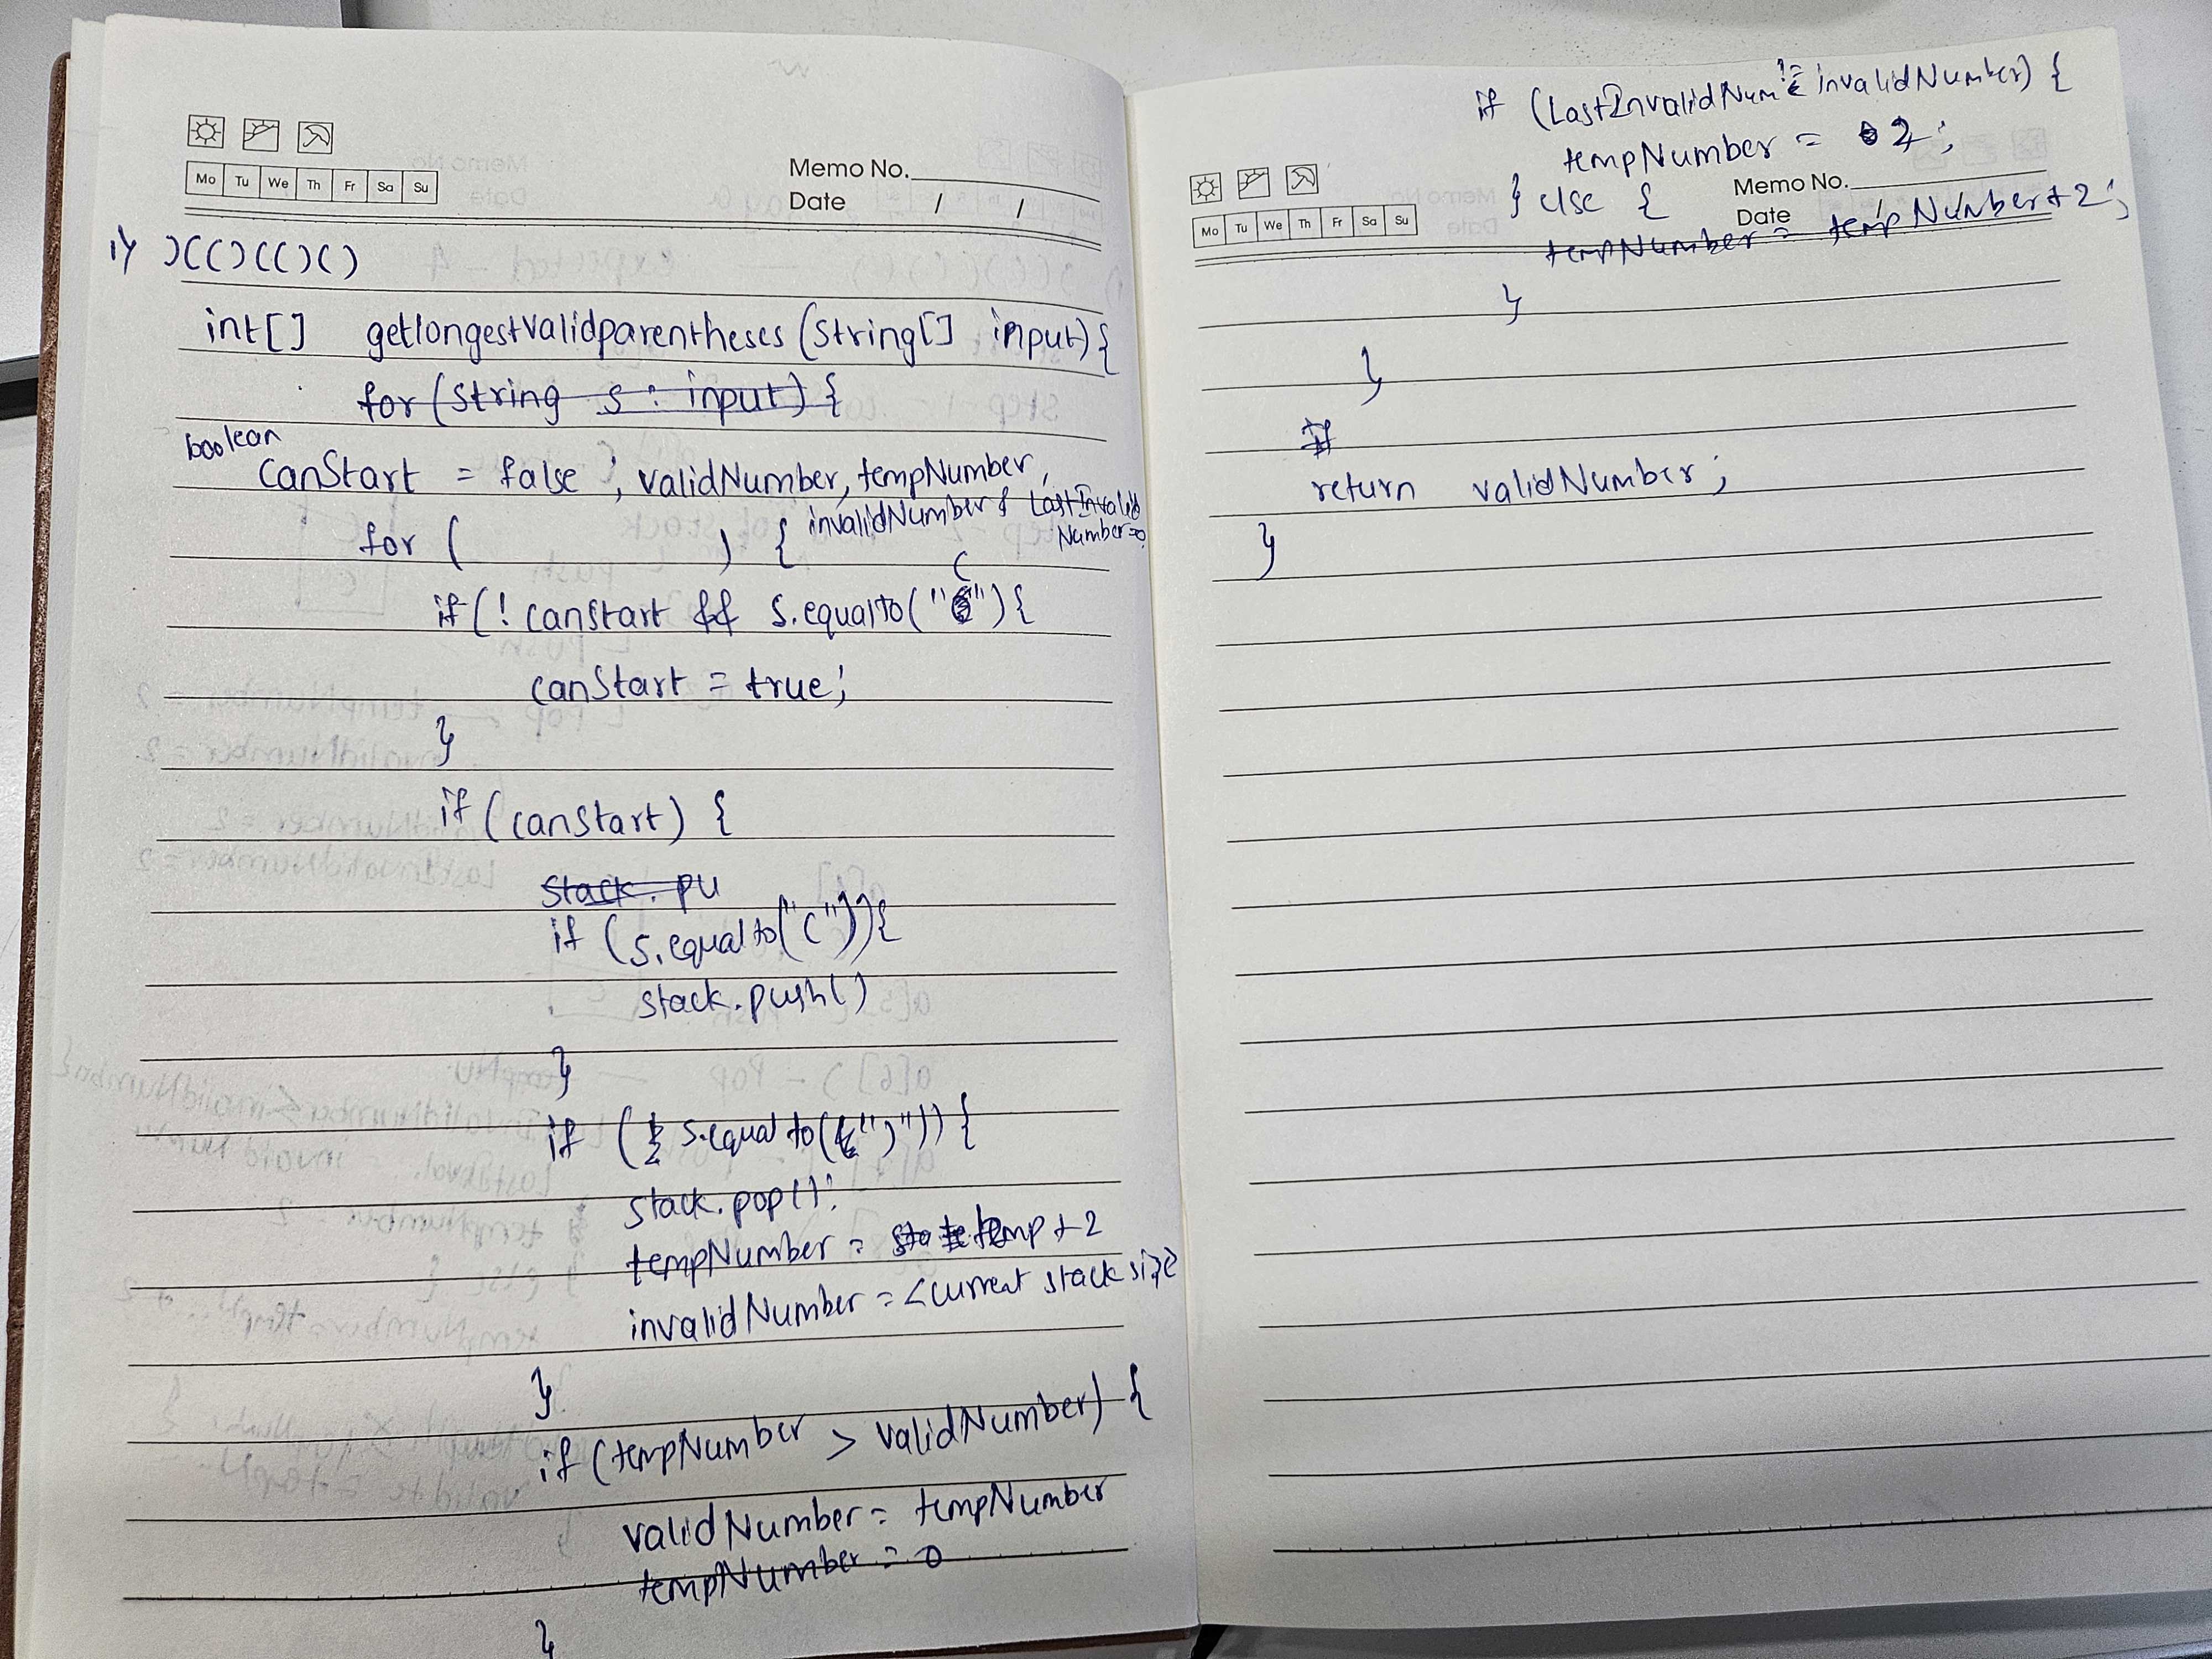 Mo Tu We Th Fr Sa Su
Memo No.
Date / /
1) )(()(()()
int[] getlongestvalidparentheses (String[] input){
for (string s : input) {
boolean
canStart = false ; validNumber, tempNumber,
invalidNumber & LastInvalid
Number=0
for ( ) {
(
if (! canstart && s.equalto(" "){
canStart = true;
}
if (canstart) {
stack. pu
if (s.equalto("(")){
stack.push()
}
if ( s.equalto( ")")) {
stack.pop();
tempNumber = temp+2
invalidNumber = <current stack size
}
if (tempNumber > validNumber) {
validNumber = tempNumber
tempNumber = 0
}
if (LastInvalidNum != invalidNumber) {
tempNumber = 2;
Mo Tu We Th Fr Sa Su
Memo No.
Date /
} else {
tempNumber = tempNumber+2;
}
}
return validNumber;
}